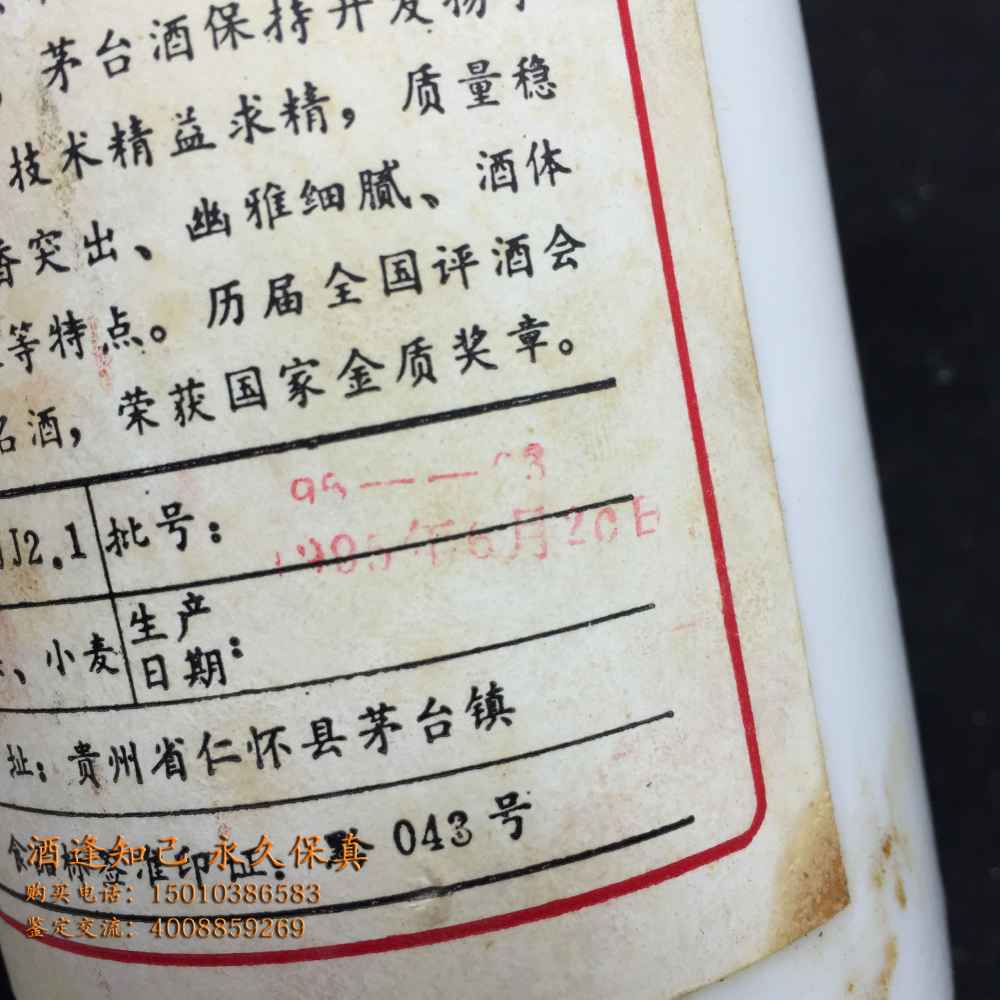 茅台酒保持并发扬了
技术精益求精，质量稳
香突出、幽雅细腻、酒体
等特点。历届全国评酒会
名酒，荣获国家金质奖章。
J2.1 批号：
年6月20日
、小麦 生产日期：
址：贵州省仁怀县茅台镇
准印证：黔 043 号
酒逢知己 永久保真
购买电话：15010386583
鉴定交流：4008859269